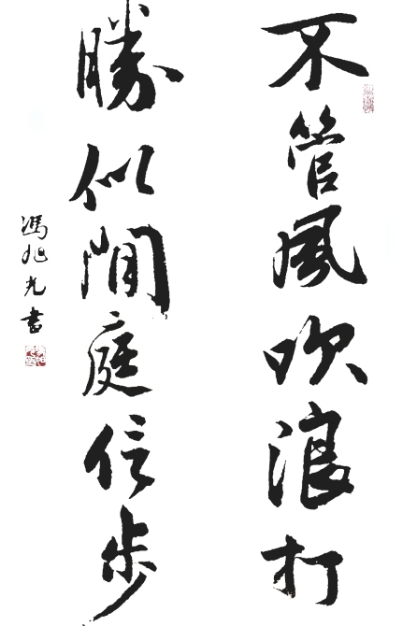 不管風吹浪打
勝似閒庭信步
馮旭光書